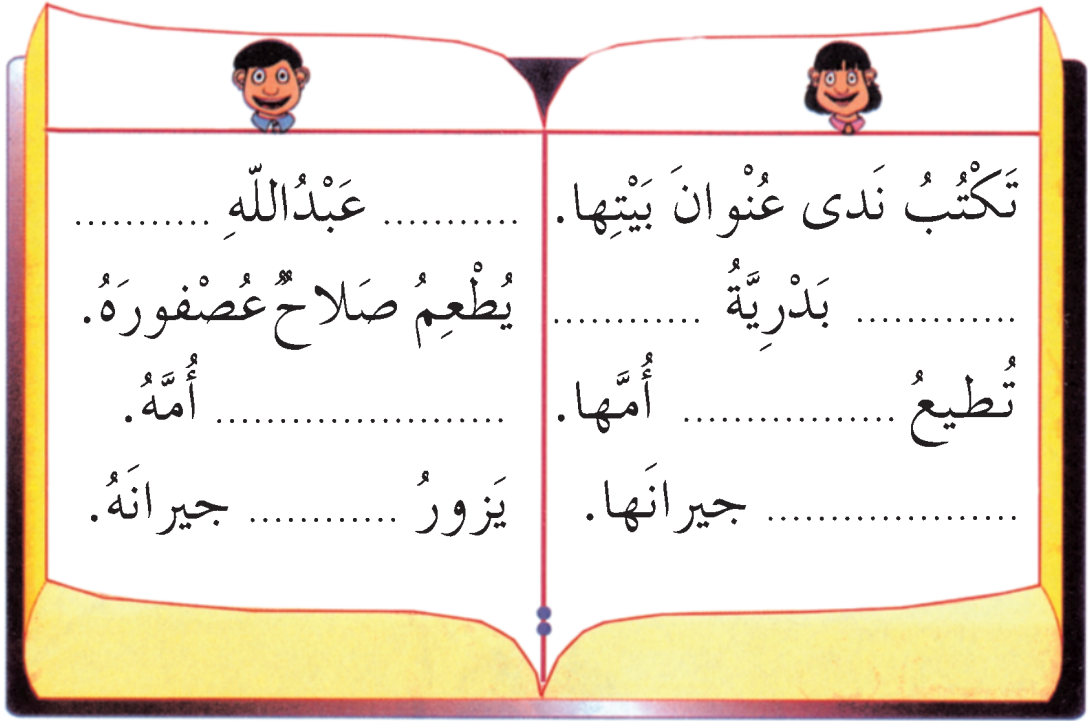 تَكْتُبُ نَدى عُنْوانَ بَيْتِها.
............... بَدْرِيَّةُ ..............
تُطيعُ .................... أُمَّها.
........................ جيرانَها.
............. عَبْدُاللّهِ .............
يُطْعِمُ صَلاحٌ عُصْفورَهُ.
........................... أُمَّهُ.
يَزورُ .............. جيرانَهُ.